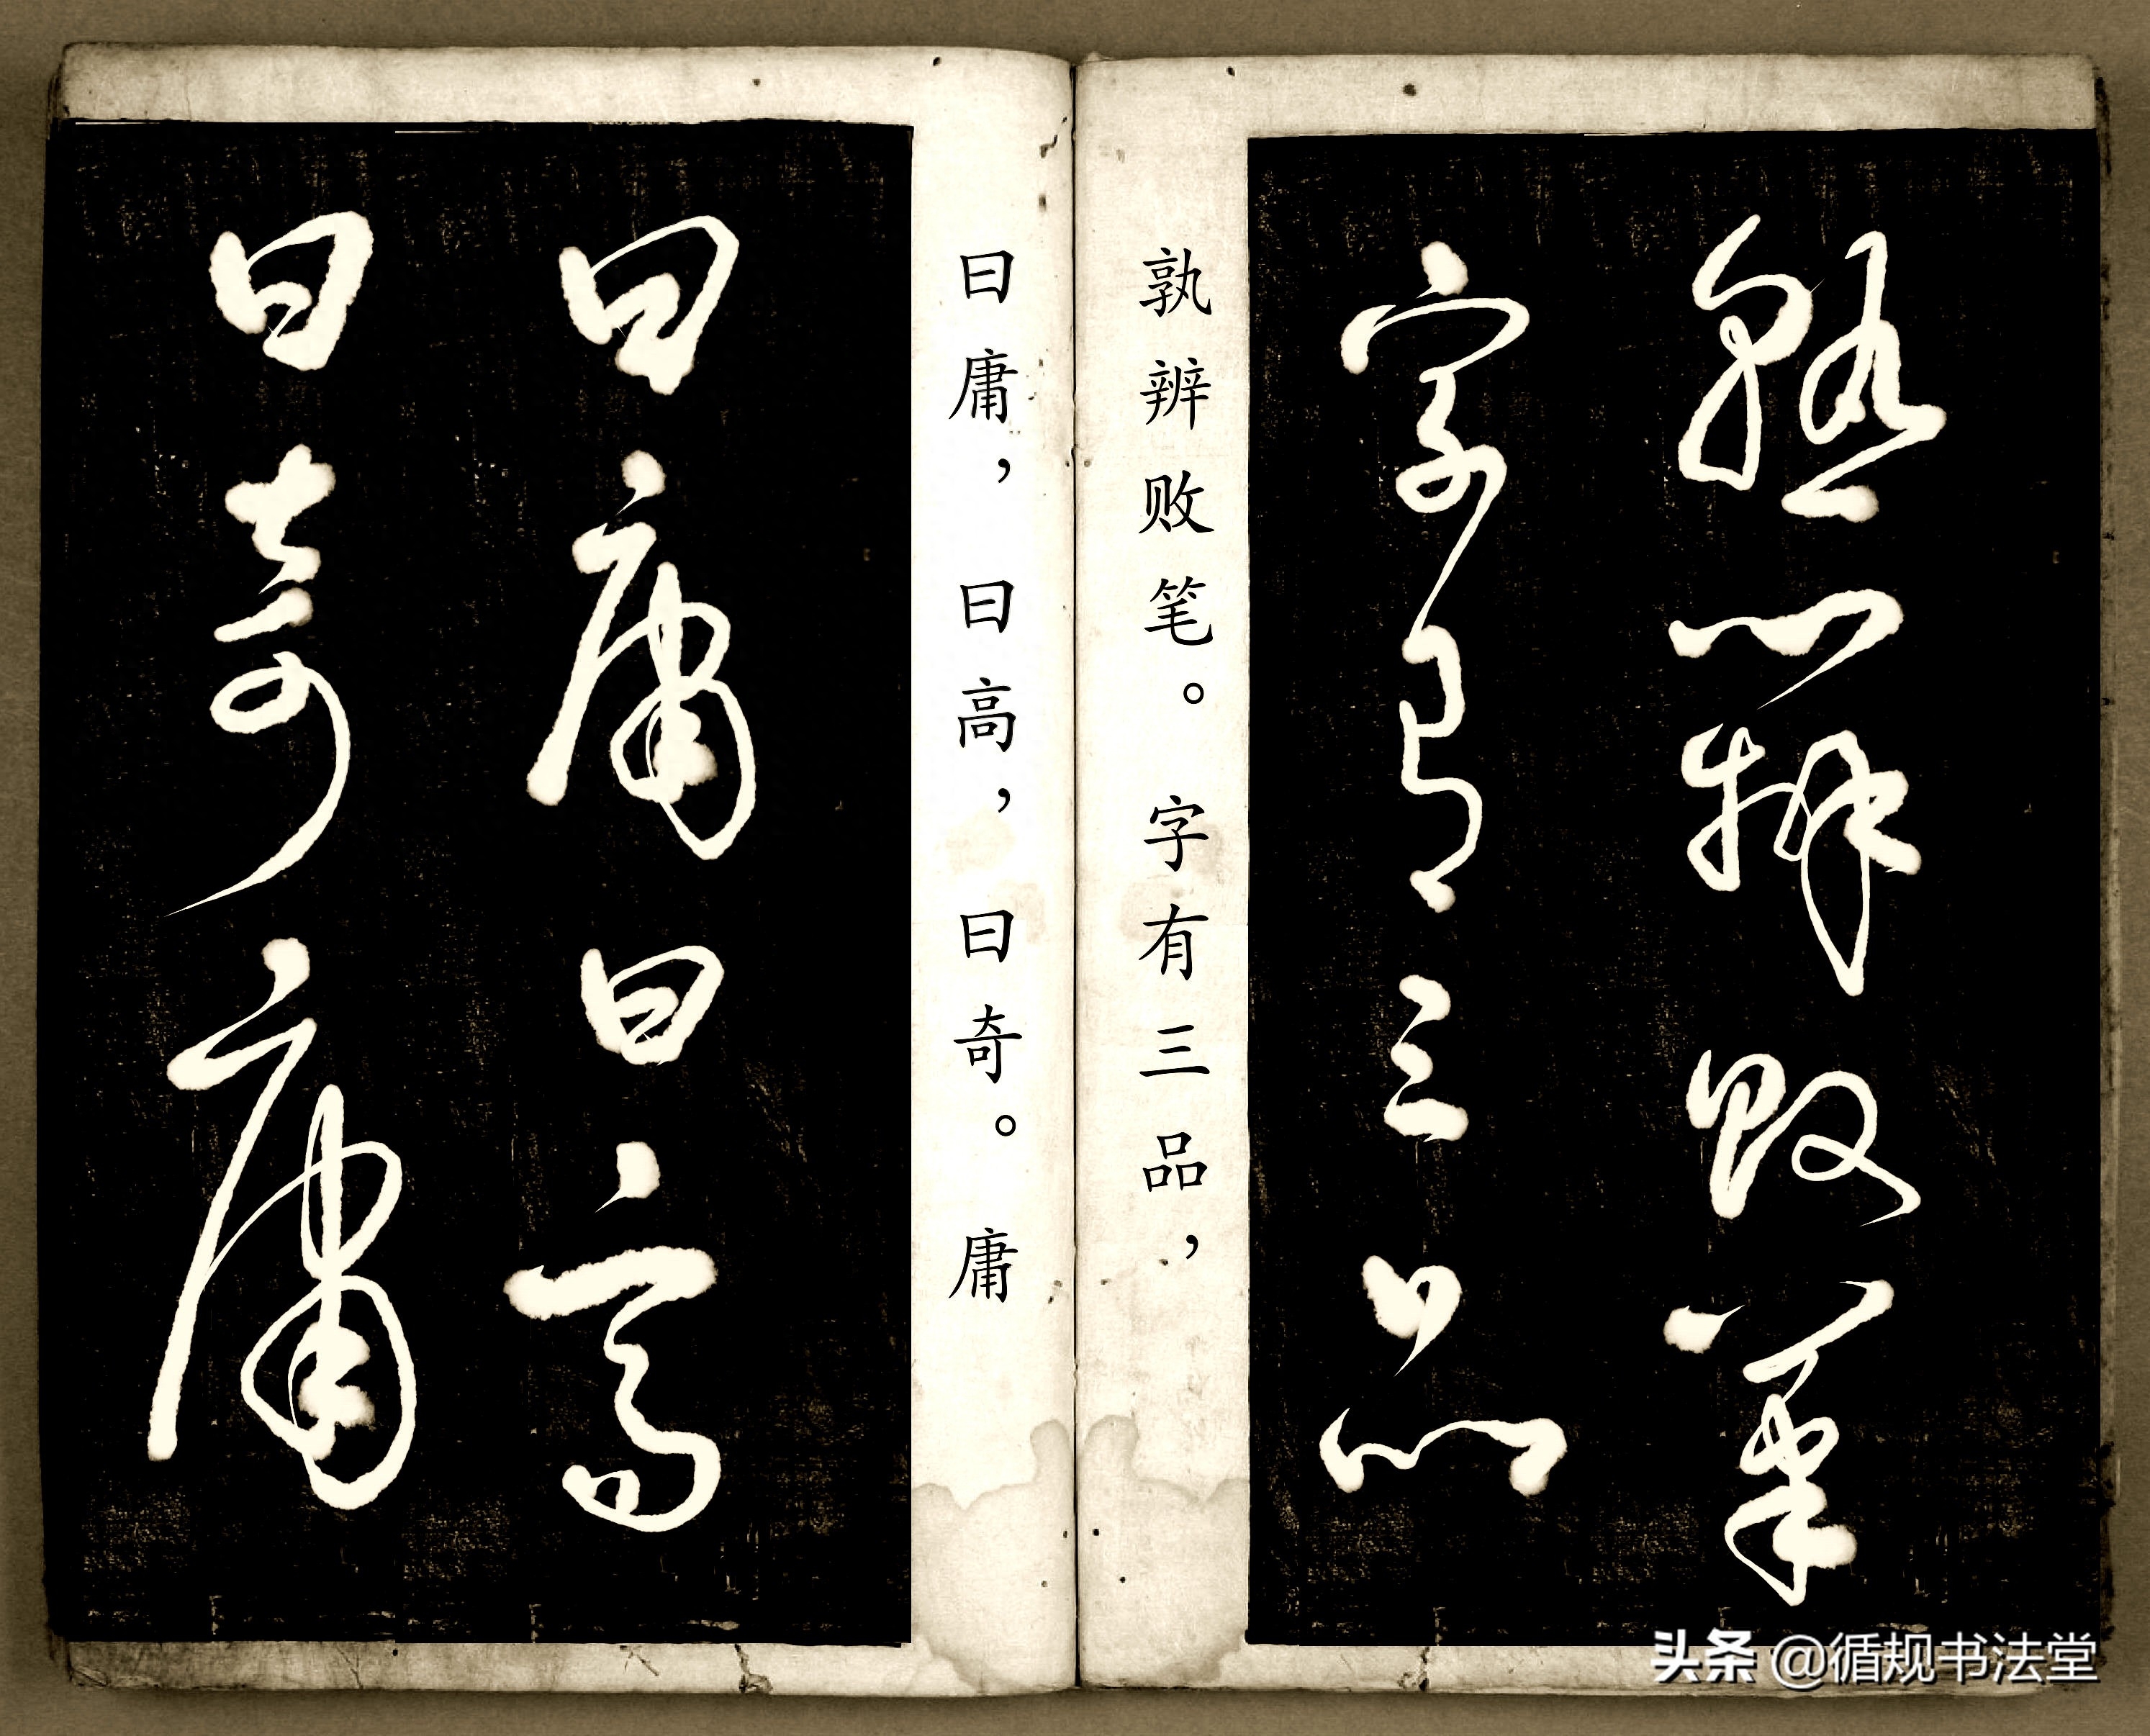 孰辨败笔
字有三品
孰辨败笔。字有三品，
曰庸，曰高，曰奇。庸
曰庸曰高
曰奇庸
头条 @循规书法堂